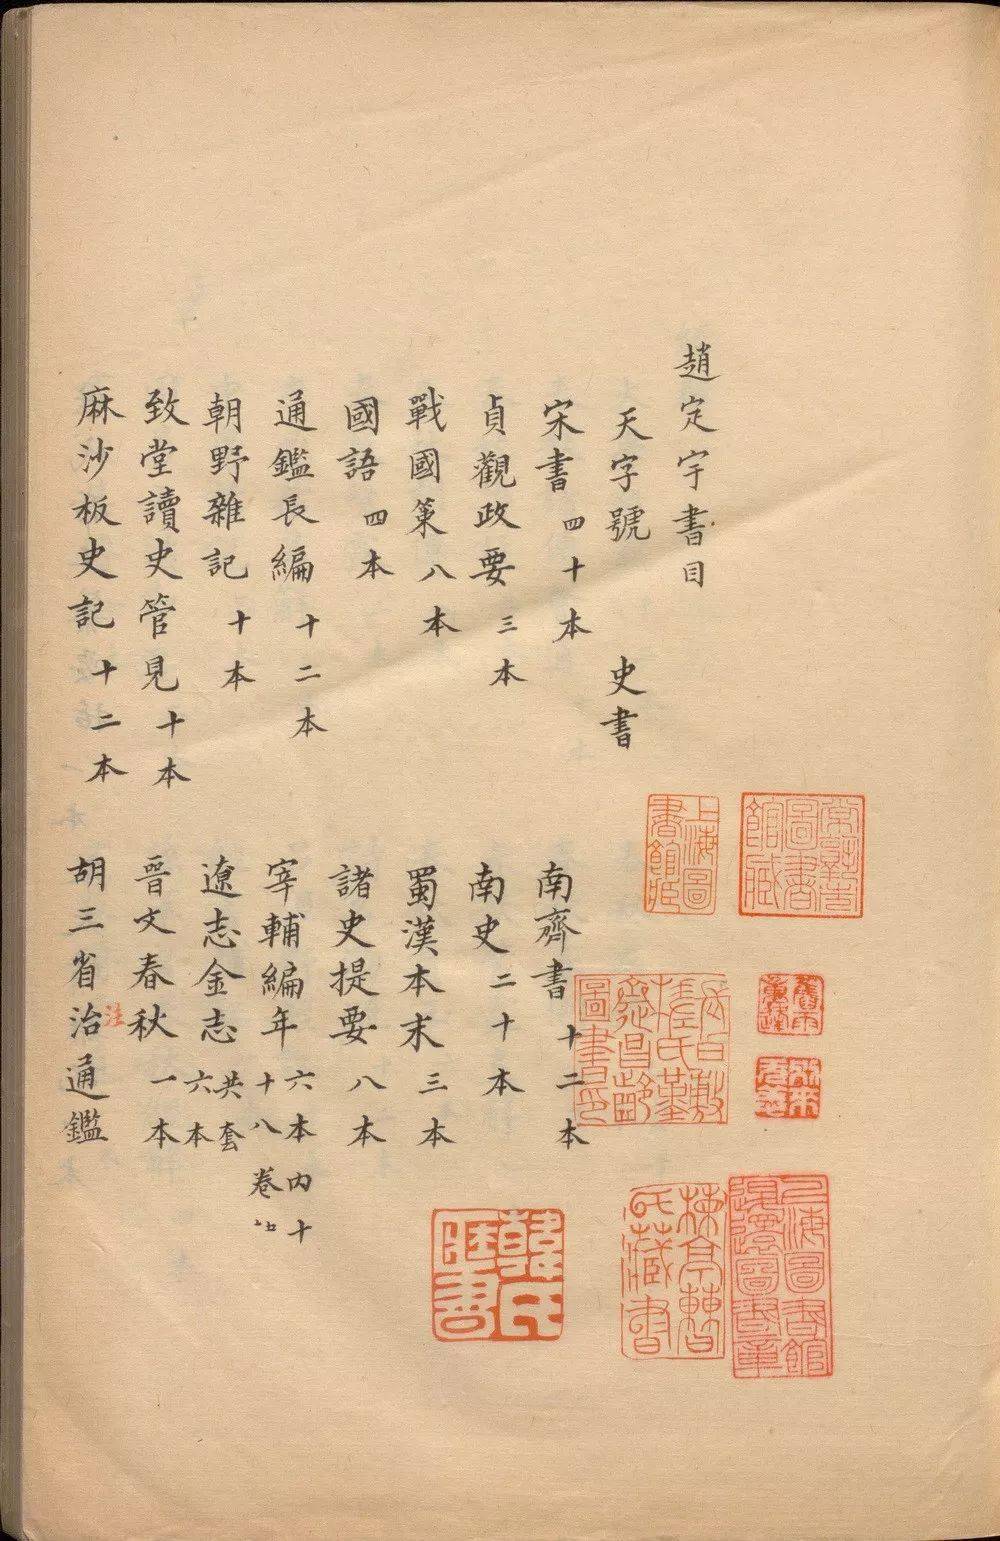 趙定宇書目
天字號 史書
宋書 四十本 南齊書 十二本
貞觀政要 三本 南史 二十本
戰國策 八本 蜀漢本末 三本
國語 四本 諸史提要 八本
通鑑長編 十二本 宰輔編年 六本內十十八卷
朝野雜記 十本 遼志金志 共套六本
致堂讀史管見 十本 晉文春秋 一本
麻沙板史記 十二本 胡三省治通鑑
注
上海圖書館藏
韓氏藏書